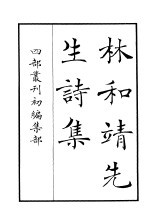 林和靖先
生詩集
四部叢刊初編集部